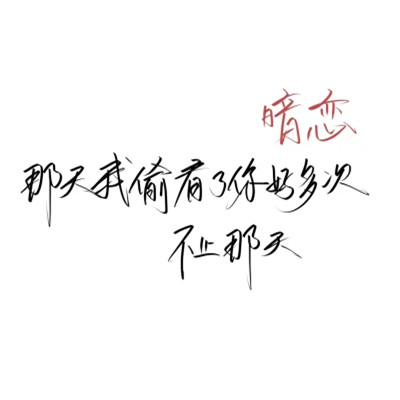 暗恋
那天我偷看了你好多次
不止那天